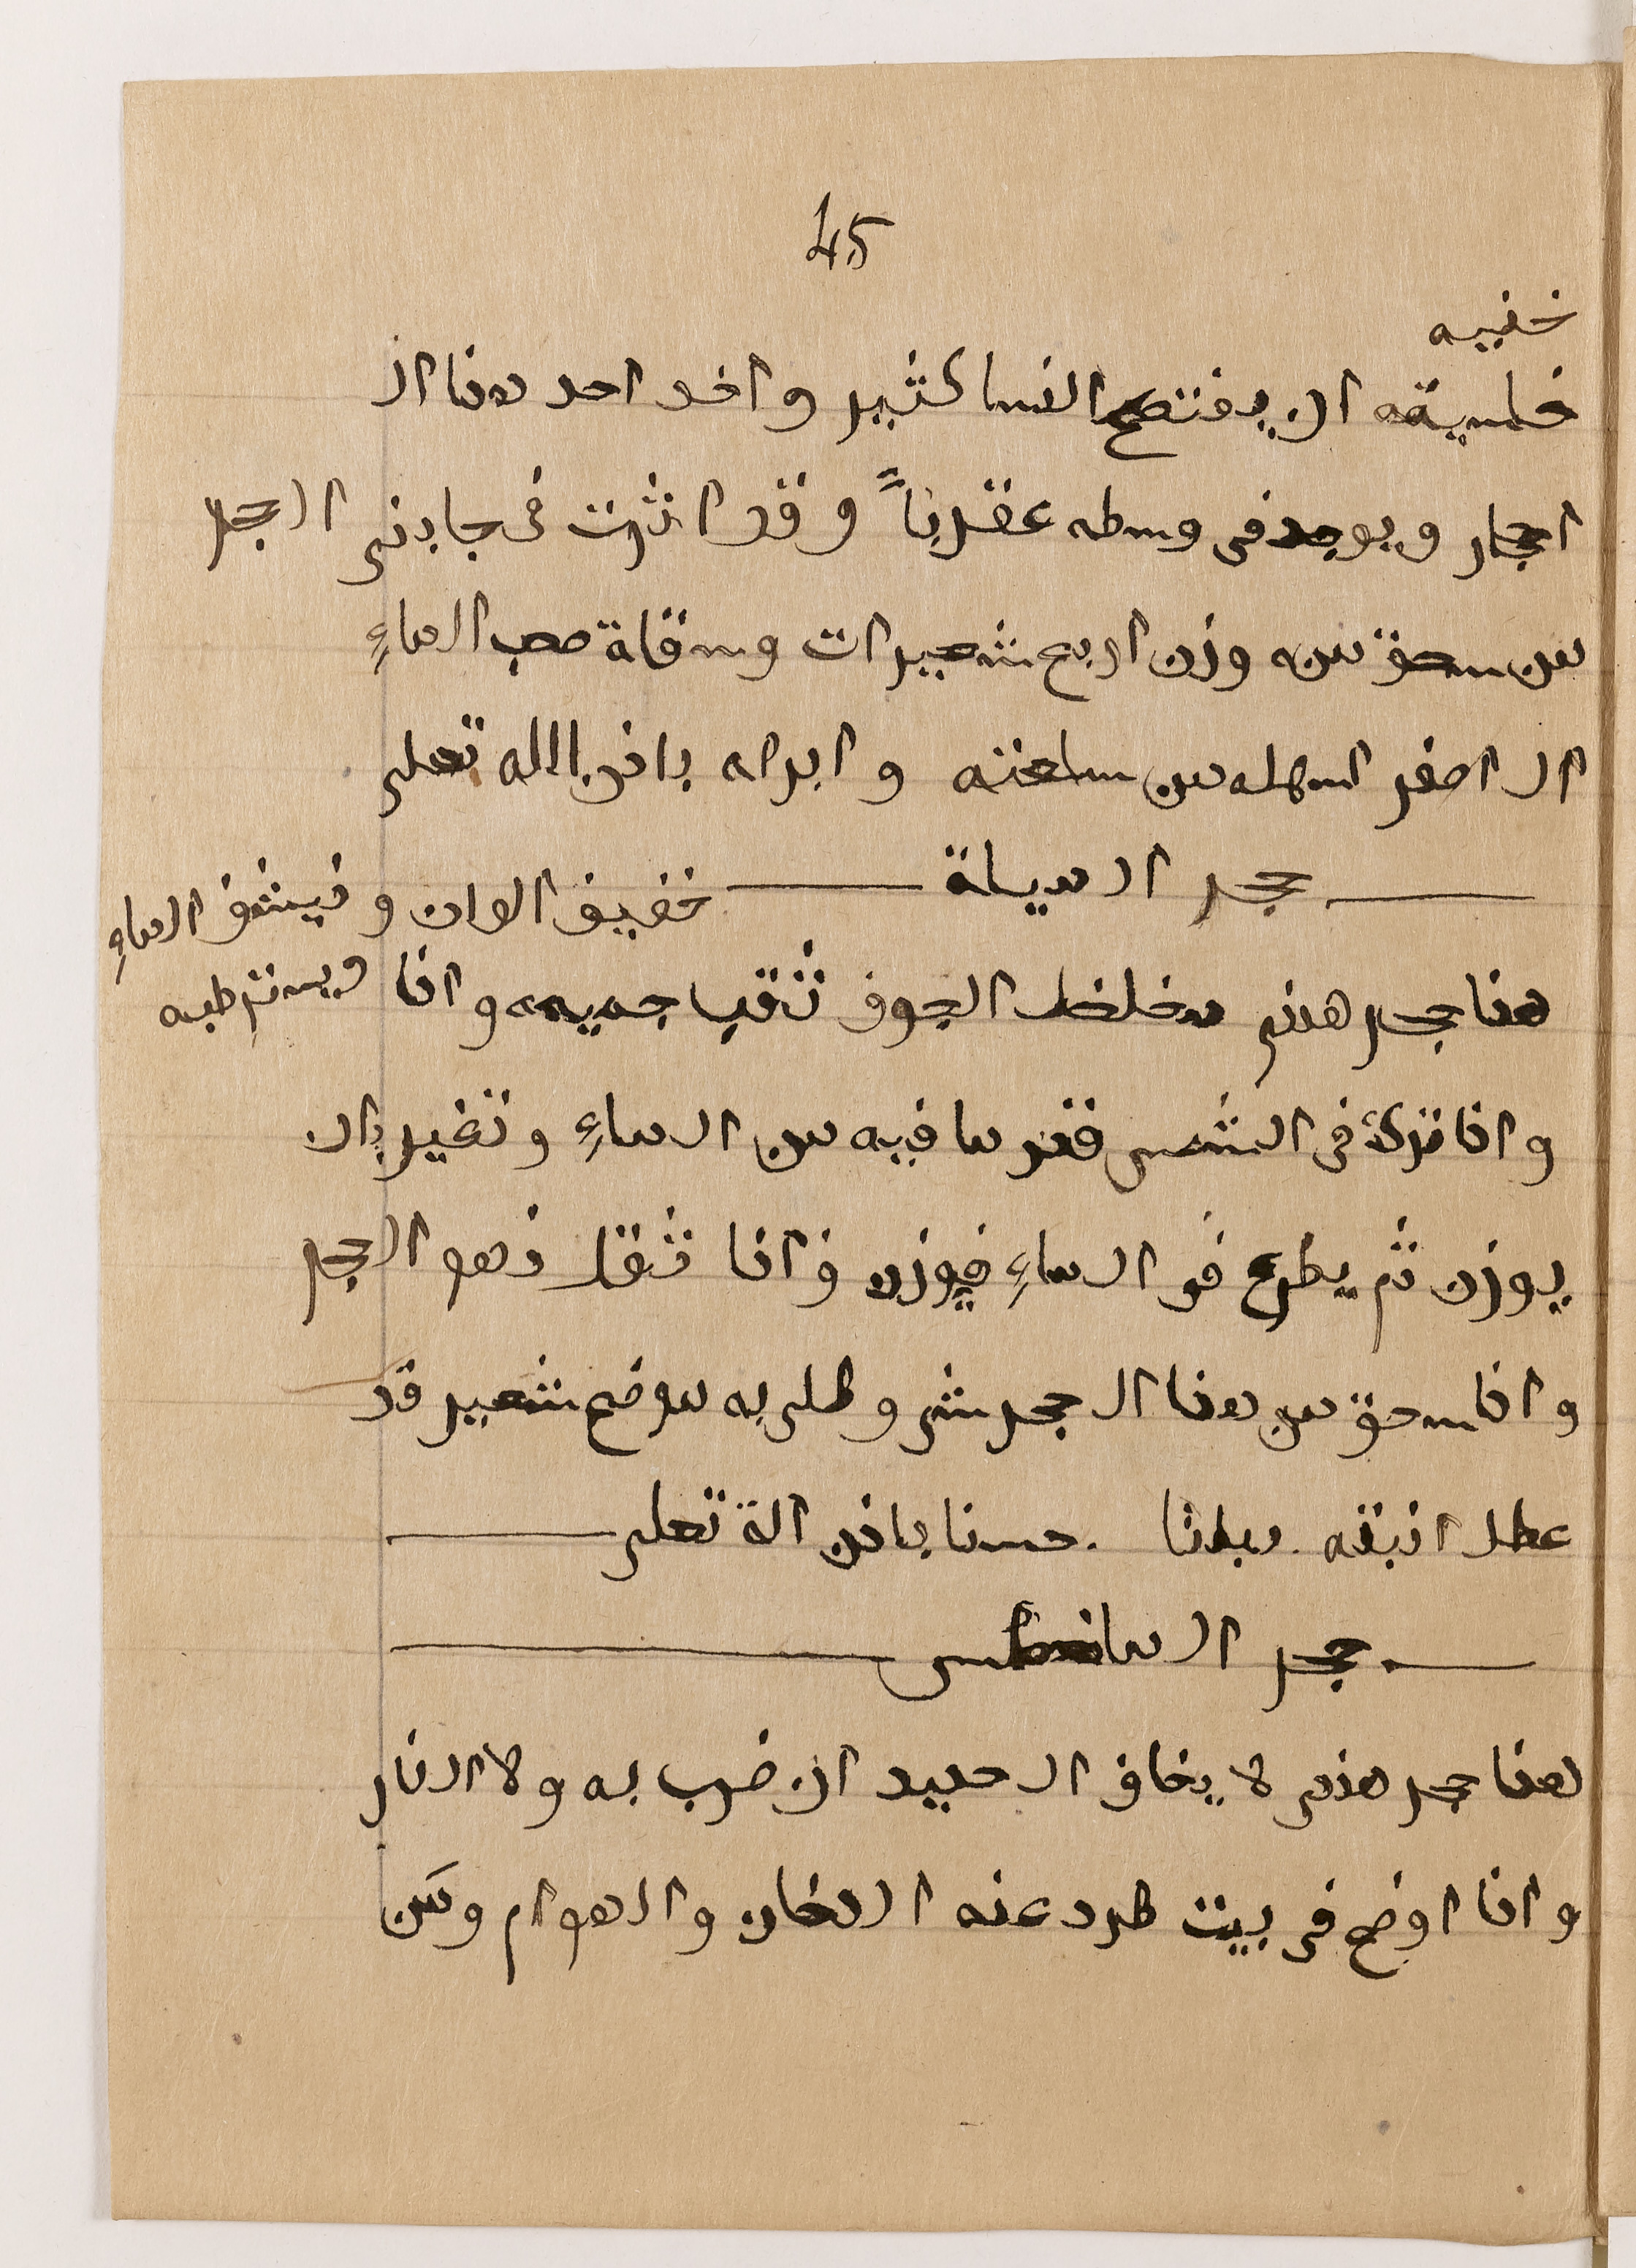 45
خفييه
خلسيقه ان يفتضح النسا كثير واخد احد هذا ال
احجار ويوجد فى وسطه عقرباً وقد اثرت فى جابنى الحجر
من سحق منه وزن اربع شعيرات وسقاة صحب الماءِ
ال اصفر اسهله من ساعته وابراه باذن الله تعلى
حجر ال ميلة خفيف الوان وفيشف الماءِ
هذا حجر هندى مخلخل الجوف ثقب جميعه واذا ويسترطبه
واذا ترك فى الشمس ففر ما فيه من ال ماءِ وتغير بان
يوزن ثم يطرح فى ال ماءِ فيوزن فاذا ثقل فهو الحجر
واذا سحق من هذا ال حجر شى وطلى به موضع شعير قد
عطل انبته نباتا حسنا باذن الة تعلى
حجر ال مانطس
هذا حجر هندى لا يخاف ال حديد ان ضرب به ولا النار
واذا اوضع فى بيت طرد عنه الدخان والهوام ومن